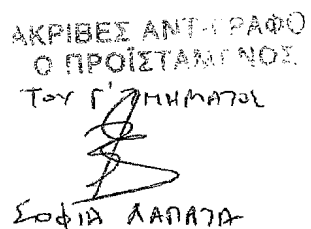 ΑΚΡΙΒΕΣ ΑΝΤΙΓΡΑΦΟ
Ο ΠΡΟΪΣΤΑΜΕΝΟΣ
ΤΟΥ Γ' ΤΜΗΜΑΤΟΣ
ΣΟΦΙΑ